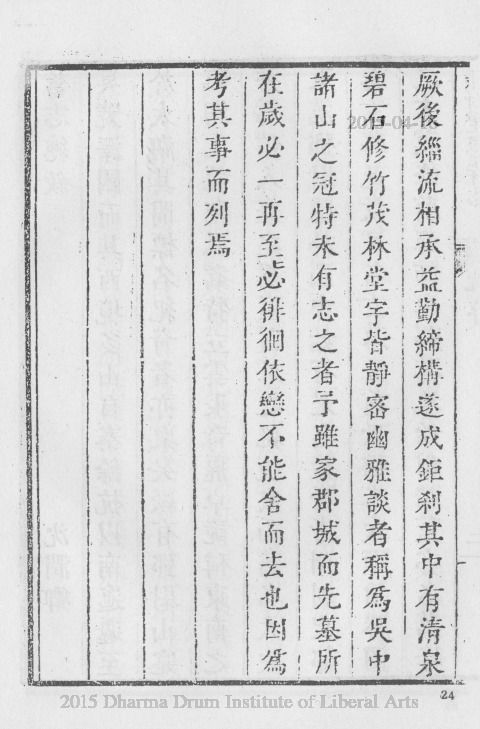 厥後緇流相承益勤締構遂成鉅剎其中有清泉
碧石修竹茂林堂宇皆靜密幽雅談者稱爲吳中
諸山之冠特未有志之者予雖家郡城而先墓所
在歲必一再至至必徘徊依戀不能舍而去也因爲
考其事而列焉
24
2015 Dharma Drum Institute of Liberal Arts